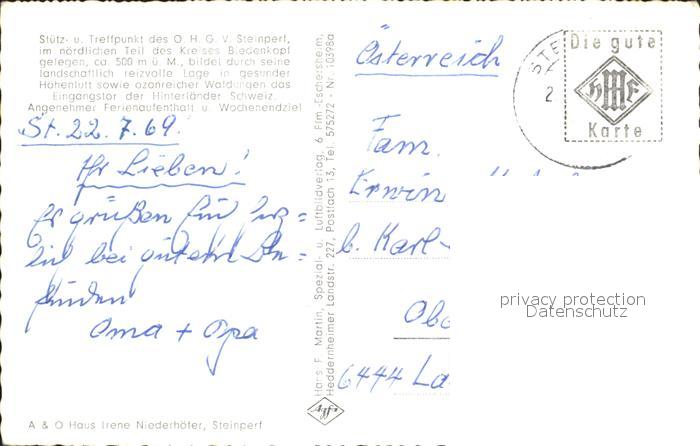 Stütz- u. Treffpunkt des O. H. G. V. Steinperf,
im nördlichen Teil des Kreises Biedenkopf
gelegen, ca. 500 m ü. M., bildet durch seine
landschaftlich reizvolle Lage in gesunder
Höhenluft sowie ozonreicher Waldungen das
Eingangstor der Hinterländer Schweiz.
Angenehmer Ferienaufenthalt u. Wochenendziel
St. 22.7.69.
Ihr Lieben!
Es grüßen Euch herz=
lich bei gutem Be=
finden
Oma + Opa
A & O Haus Irene Niederhöfer, Steinperf
Hans F. Martin, Spezial- u. Luftbildverlag, 6 Ffm.-Eschersheim,
Heddernheimer Landstr. 227, Postfach 13, Tel. 575272 · Nr. 10398a
Agfa
Österreich
Fam.
Erwin
b. Karl-
Obe
6444 La
STE
2
Die gute
HMF
Karte
privacy protection
Datenschutz